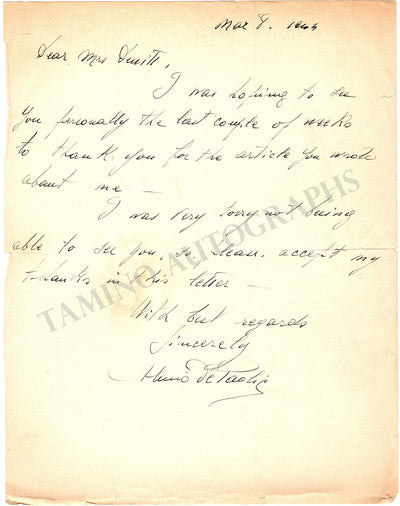 Mar 8. 1944
Dear Mrs
I was hoping to see
you personally the last couple of weeks
to thank you for the article you wrote
about me —
I was very sorry not being
able to see you, so please accept my
thanks in this letter —
With best regards
Sincerely
De Paolis
TAMINO AUTOGRAPHS